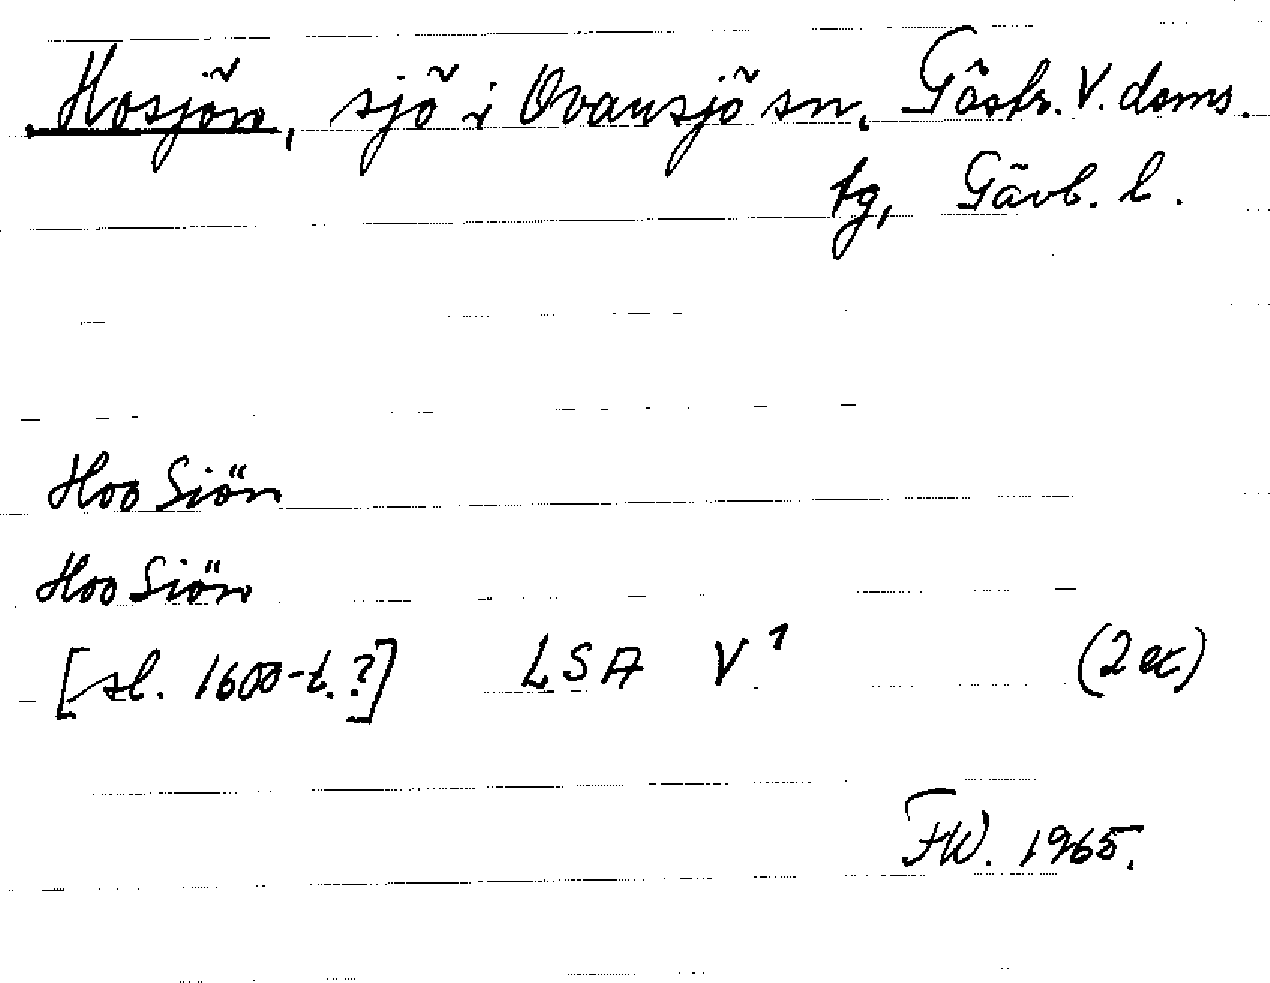 Hosjön, sjö i Ovansjö sn. Gästr. V. doms.
tg, Gävb. l.
Hoo Siön
Hoo Siön
[sl. 1600-t.?] LSA V¹ (2 ex)
FW. 1965.